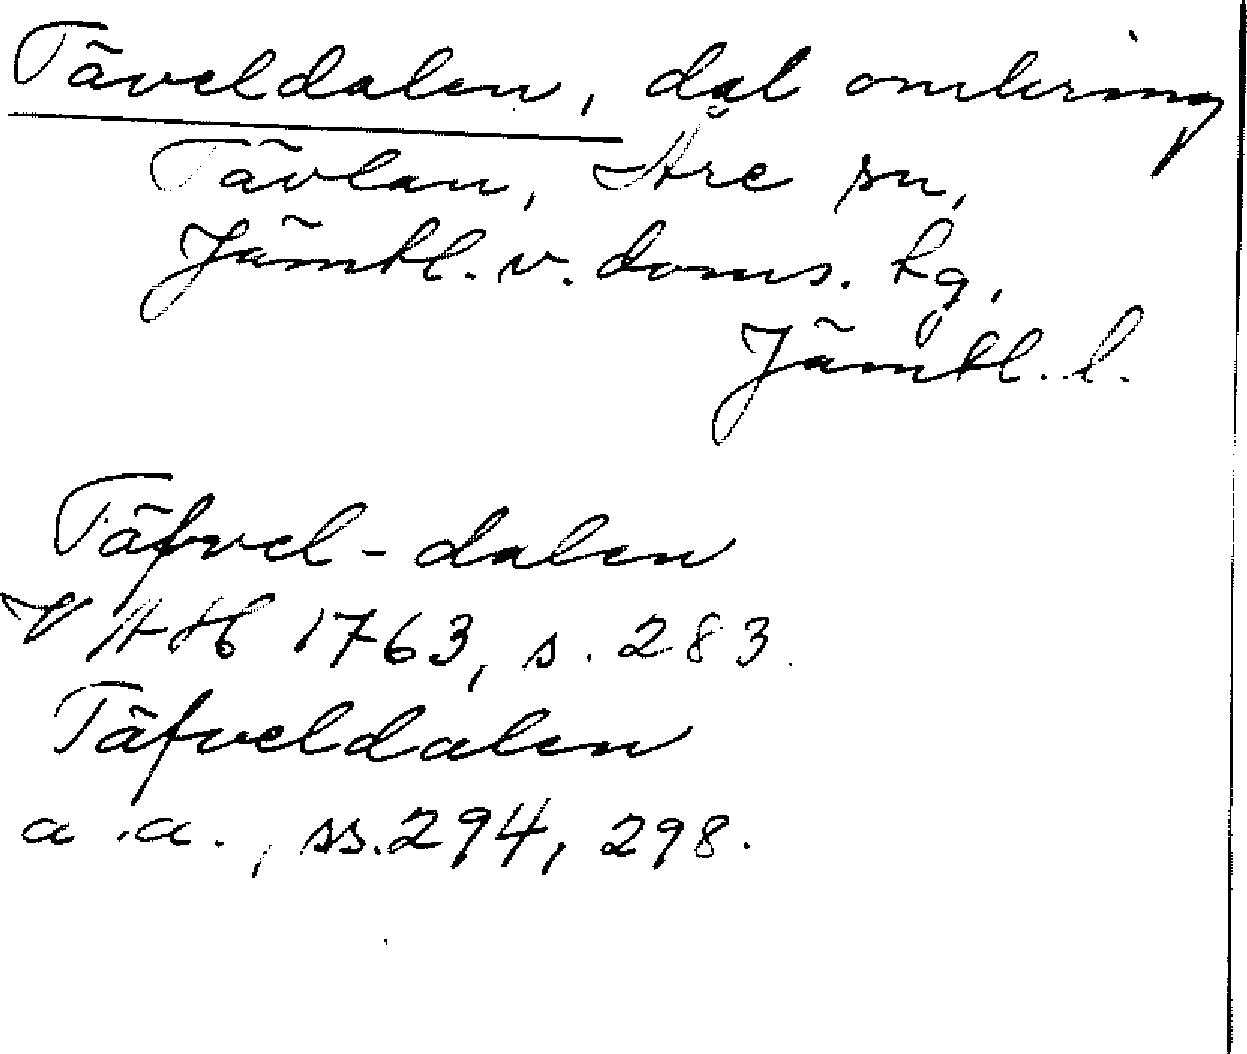 Täveldalen, dal omkring
Tävlan, Åre sn,
Jämtl. v. doms. tg,
Jämtl. l.
Täfvel-dalen
VAH 1763, s. 283.
Täfveldalen
a.a., ss. 294, 298.